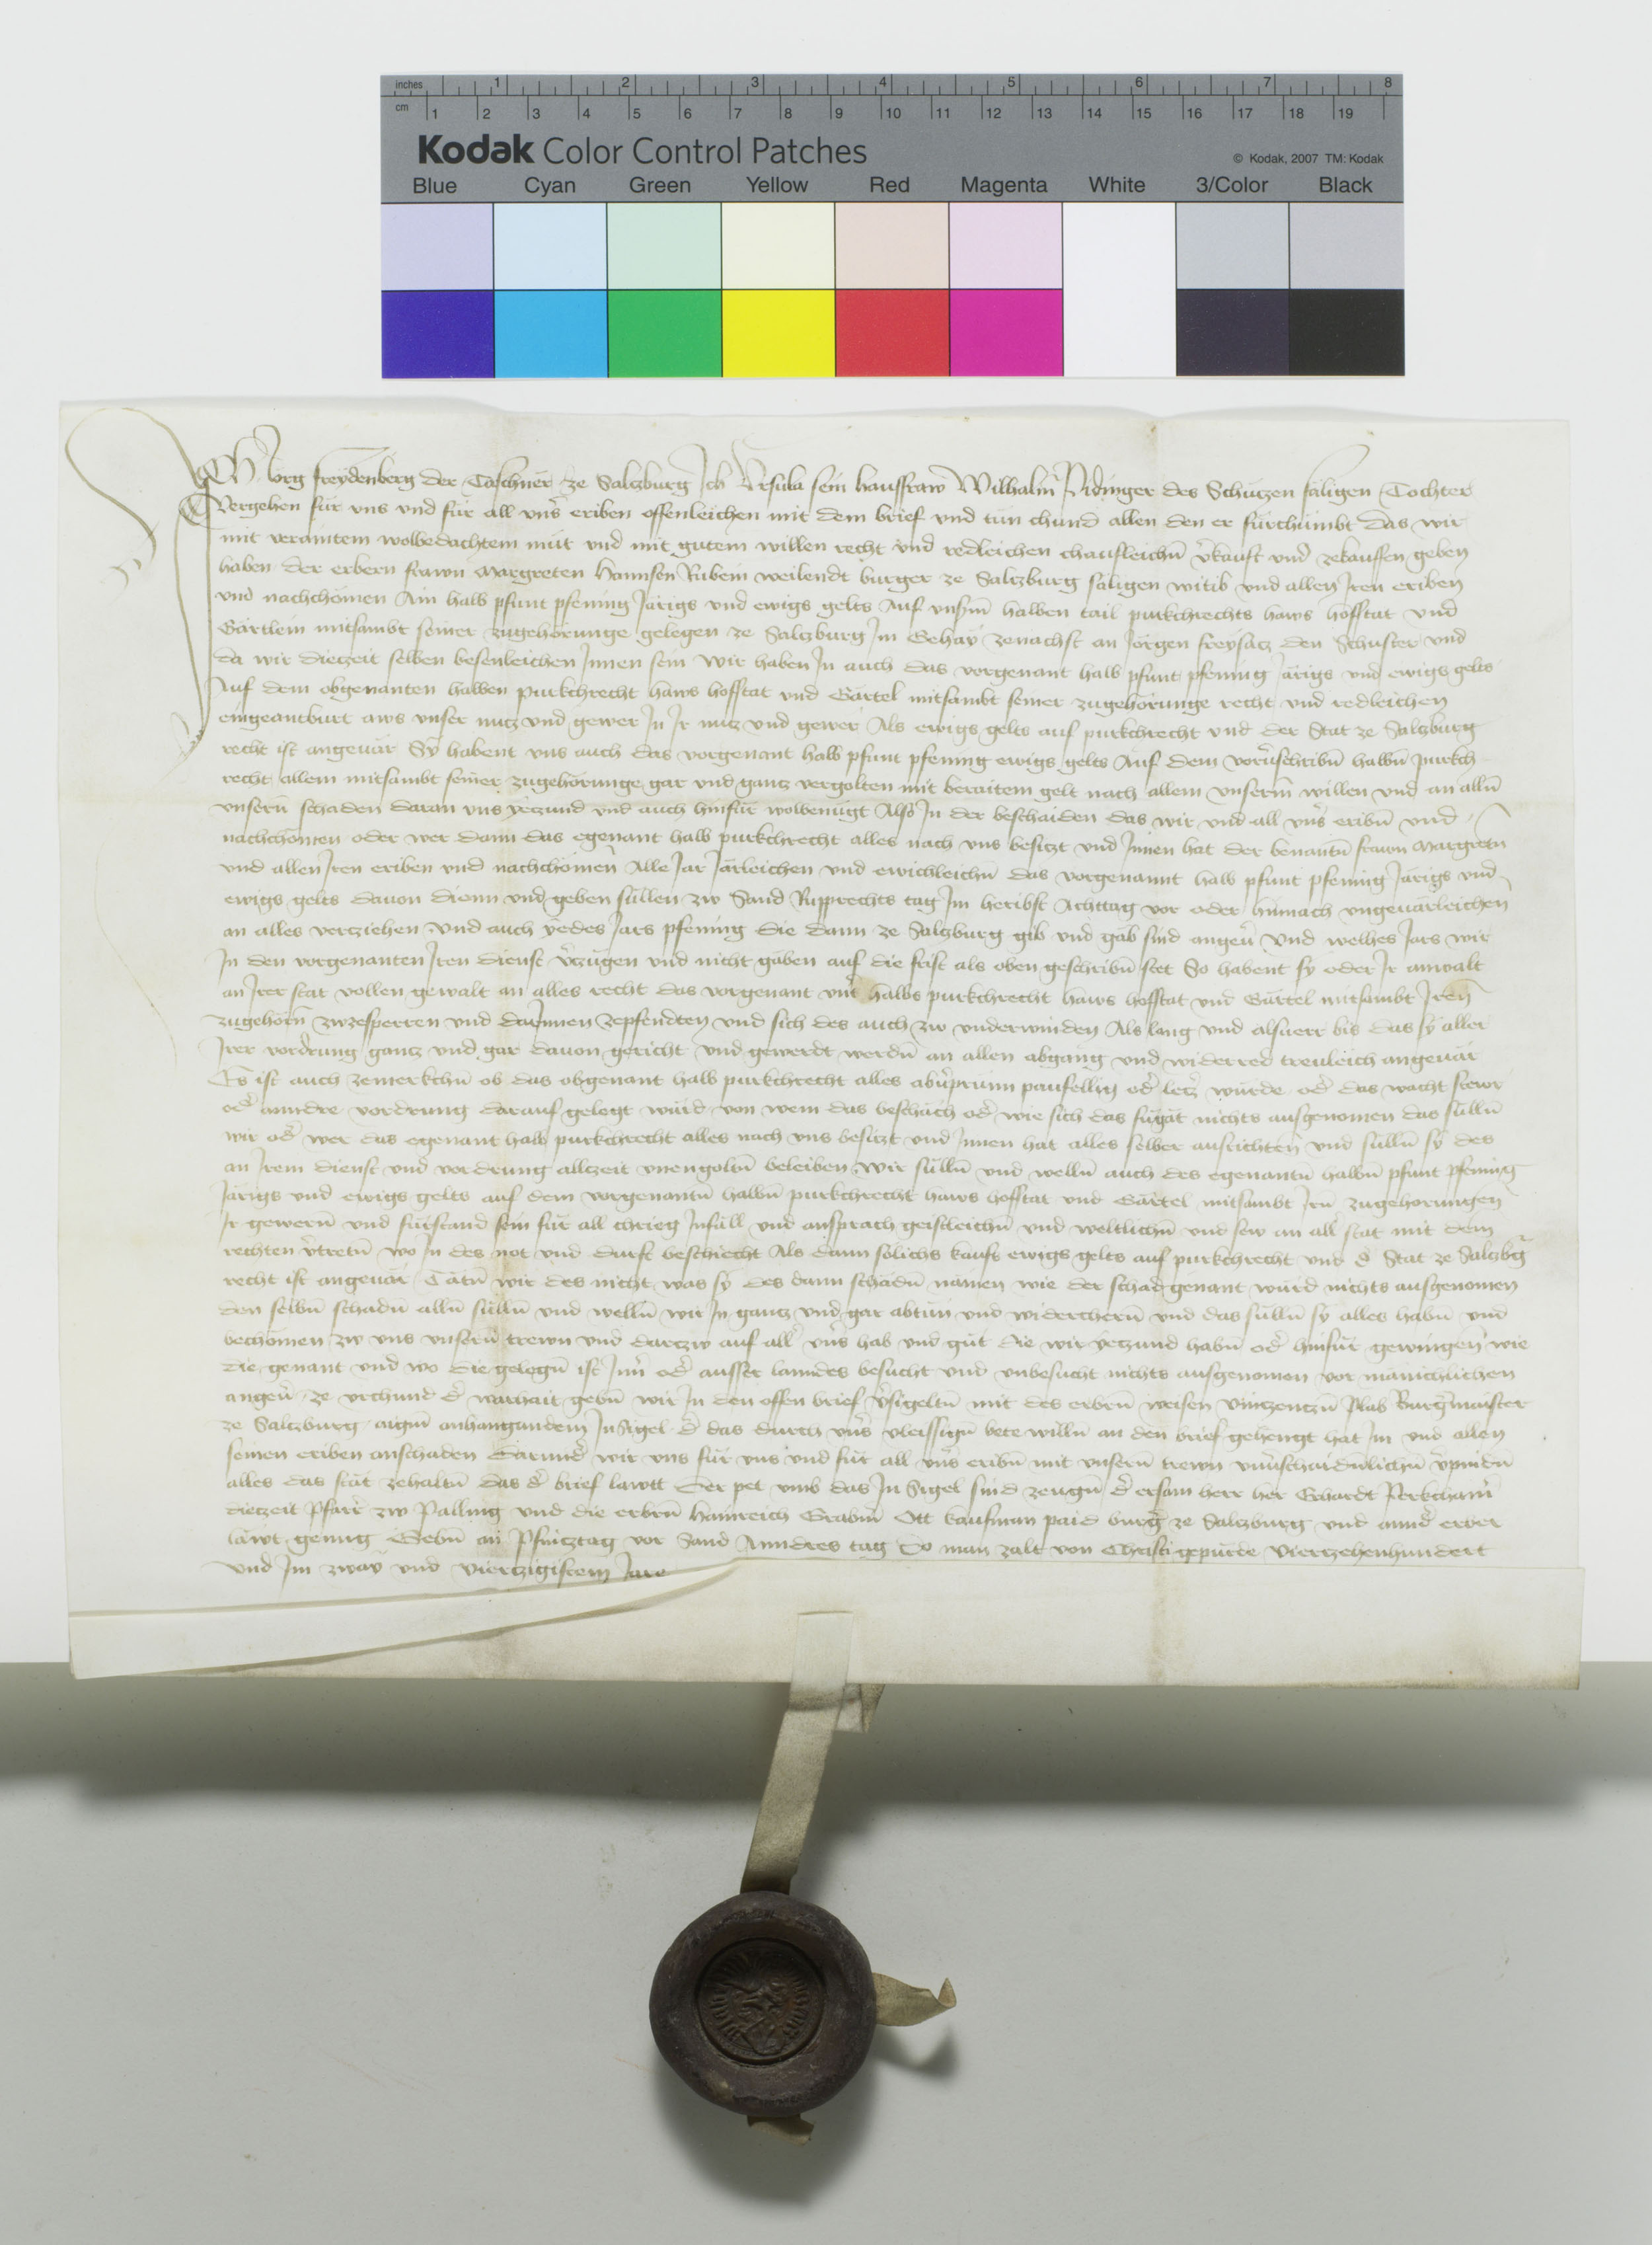 inches 1 2 3 4 5 6 7 8
cm 1 2 3 4 5 6 7 8 9 10 11 12 13 14 15 16 17 18 19
Kodak Color Control Patches © Kodak, 2007 TM: Kodak
Blue Cyan Green Yellow Red Magenta White 3/Color Black
Jörg freydenberg der Taschner ze Salzburg Ich Ursula sein hausfraw Wilhalm des Schützen säligen Tochter
Vergehen für uns und für all uns̉ eriben offenleichen mit dem brief und tün chund allen den er fürchümbt das wir
mit veraintem wolbedachtem müt und mit gutem willen recht und redleichen chaufleichn̄ v̉kauft und zekauffen geben
haben der erbern frawn Margreten Hannsen Rubein weilendt burger ze Salzburg säligen witib und allen Iren eriben
und nachchömen Ain halb pfunt pfening Järigs und ewigs gelts Auf unsm̄ halben tail purkchrechts haws hofstat und
Gärtlein mitsambt seiner zugehörunge gelegen ze Salzburg Im Gehay zenachst an Jörgen freysatz den Schuster und
da wir diezeit selben besenleichen Innen sein Wir haben In auch das vorgenant halb pfunt pfening järigs und ewigs gelts
Auf dem obgenanten halben purkchrecht haws hofstat und Gärtel mitsambt seiner zugehörunge recht und redleichen
eingeantburt aws unser nutz und gewer In Ir nutz und gewer Als ewigs gelts auf purkchrecht und der Stat ze Salzburg
recht ist angevär Sy habent uns auch das vorgenant halb pfunt pfening ewigs gelts Auf dem vorv̉schribn̄ halbn̄ purkch
recht allem mitsambt seiner zugehörunge gar und gantz vergolten mit beraitem gelt nach allem unserm̄ willen und an alln̄
unsern̄ schaden daran uns yetzund und auch hinfür wolbenügt Also In der beschaiden das wir und all uns̉ eribn̄ und
nachchömen oder wer dann das egenant halb purkchrecht alles nach uns besitzt und Innen hat der benantn̄ frawn Margretn
und allen Iren eriben und nachchömen Alle Jar Järleichen und ewichleichn̄ das vorgenannt halb pfunt pfening Järigs und
ewigs gelts davon dienn und geben süllen zw Sand Rupprechts tag Im heribst Achttag vor oder hinnach ungevärleichen
an alles verziehen Und auch yedes Jars pfening die dann ze Salzburg gib und gäb sind angev̉ Und welhes Jars wir
In den vorgenanten Iren dienst v̉zügen und nicht gäben auf die frist als oben geschribn̄ stet So habent sy oder Ir anwalt
an Irer stat vollen gewalt an alles recht das vorgenant uns̉ halbs purkchrecht haws hofstat und Gärtel mitsambt Iren
zugehörn̄ zwzesperren und darinnen zepfendten und sich des auch zw underwinden Als lang und alsverr bis das sy aller
Irer vordrung gantz und gar davon gericht und gewerdt werdn̄ an allen abgang und widerred treuleich angevär
Es ist auch zemerkchn̄ ob das obgenant halb purkchrecht alles abv̉prunn paufellig od̉ letz würde od̉ das wacht stewr
od̉ anndre vordrung darauf gelegt würd von wem das beschäch od̉ wie sich das fügät nichts ausgenomen das sülln̄
wir od̉ wer das egenant halb purkchrecht alles nach uns besitzt und Innen hat alles selber ausrichten und sülln̄ sy des
an Irem dienst und vordrung allzeit unengoltn̄ beleiben Wir sülln̄ und welln̄ auch des egenantn̄ halbn̄ pfunt pfening
Järigs und ewigs gelts auf dem vorgenantn̄ halbn̄ purkchrecht haws hofstat und Gärtel mitsambt Irn̄ zugehorungen
Ir gewern̄ und fürstand sein für all chrieg Infäll und ansprach geistleichn̄ und weltlichn̄ und sew an all̉ stat mit dem
rechten v̉tretn̄ wo In des not und durft beschiecht Als dann sölichs kaufs ewigs gelts auf purkchrecht und d̉ Stat ze Salzbg̉
recht ist angevär Tätn̄ wir des nicht was sy des dann schadn̄ namen wie der schad genant würd nichts ausgenomen
den selbn̄ schadn̄ alln̄ sülln̄ und welln̄ wir In gantz und gar abtün und widerchern̄ und das sülln̄ sy alles habn̄ und
bechömen zw uns unsern̄ trewn und dartzw auf all̉ uns̉ hab und güt die wir yetzund habn̄ od̉ hinfür gewingen wie
die genant und wo die gelegn̄ ist Inn̉ od̉ ausser lanndes besucht und unbesucht nichts ausgenomen vor mänichlichen
angev̉ Ze urchund d̉ warhait gebn̄ wir In den offen brief v̉sigeltn̄ mit des erbrn̄ weisen Vinzentzn̄ Burg̉maister
ze Salzburg aigm̄ anhangundem InSigel d̉ das durch uns̉ vleissign̄ bete willn̄ an den brief gehengt hat Im und allen
seinen eriben anschaden Darund̉ wir uns für uns und für all uns̉ eribn̄ mit unsern̄ trewn unv̉schaidnlichn̄ v̉pindn̄
alles das stät zehaltn̄ das d̉ brief lawtt Der pet umb das InSigel sind zeugn̄ d̉ ersam herr her Erhardt
diezeit Pfarr̉ zw Palling und die erbrn̄ Hainreich Ott kaufman paid burg̉ ze Salzburg und annd̉ erber
läwt genug Gebn̄ an Pfintztag vor Sand Anndres tag Do man zalt von Christi gepurde Viertzehenhundert
und Im zway und Viertzigistem Jare